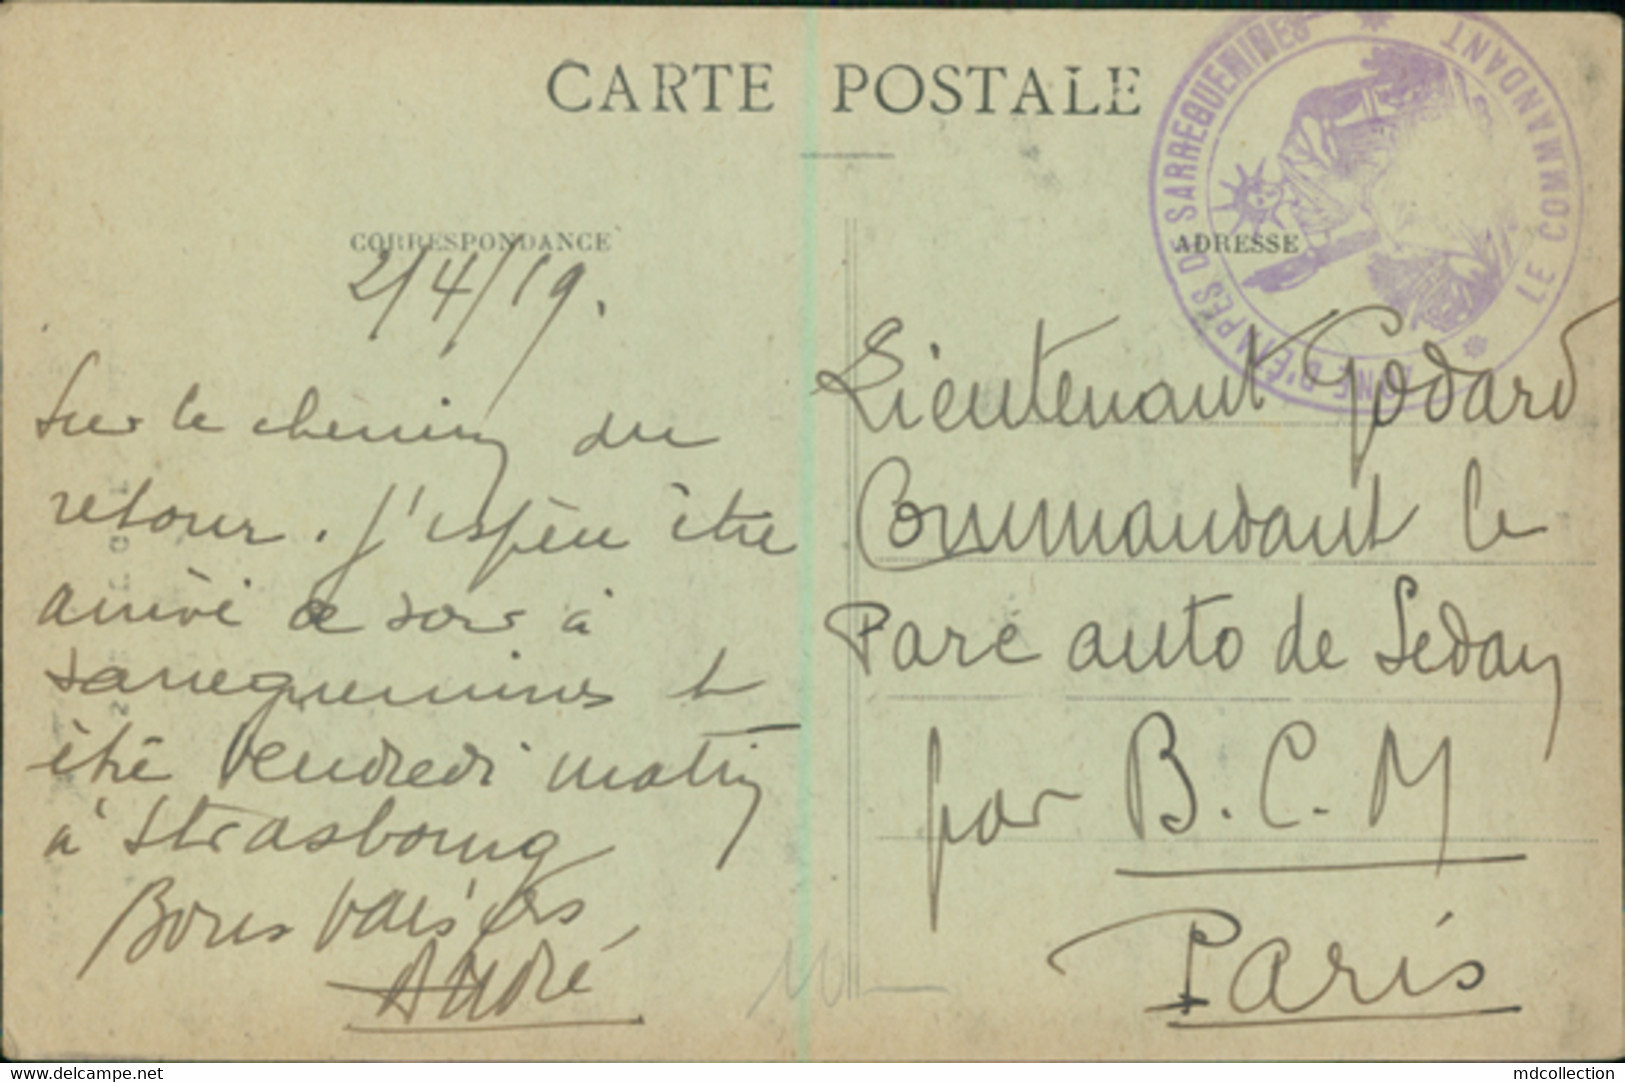 CARTE POSTALE
CORRESPONDANCE
2/4/19.
Sur le chemin du
retour. J'espère être
arrivé ce soir à
Sarreguemines et
être Vendredi matin
à Strasbourg
Bons baisers
André
ADRESSE
Lieutenant Godard
Commandant le
Parc auto de Sedan
par B.C.M
Paris
ZONE D'ÉTAPES DE SARREGUEMINES
LE COMMANDANT
10
delcampe.net
mdcollection